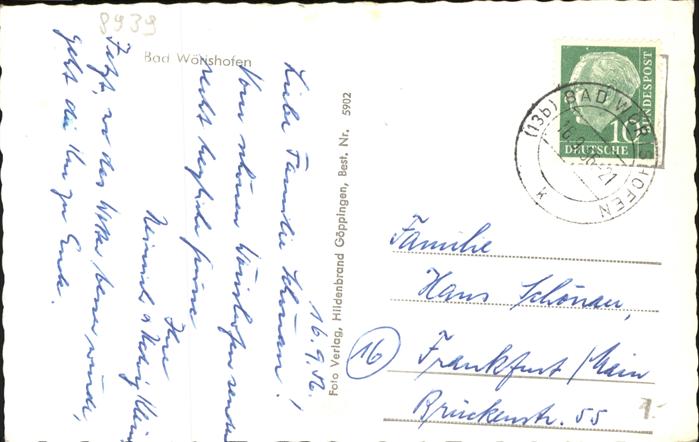 8939
Bad Wörishofen
16.9.56.
Liebe Familie Schönau!
Vom schönen Wörishofen senden
recht herzliche Grüsse
Ihre
Heinrich & Hedwig Klein
Jetzt, wo das Wetter besser würde,
geht die Kur zu Ende.
Foto Verlag, Hildenbrand Göppingen, Best. Nr. 5902
10
DEUTSCHE
BUNDESPOST
(13b) BAD WÖRISHOFEN
Familie
Hans Schönau,
16
Frankfurt/Main
Brückenstr. 55